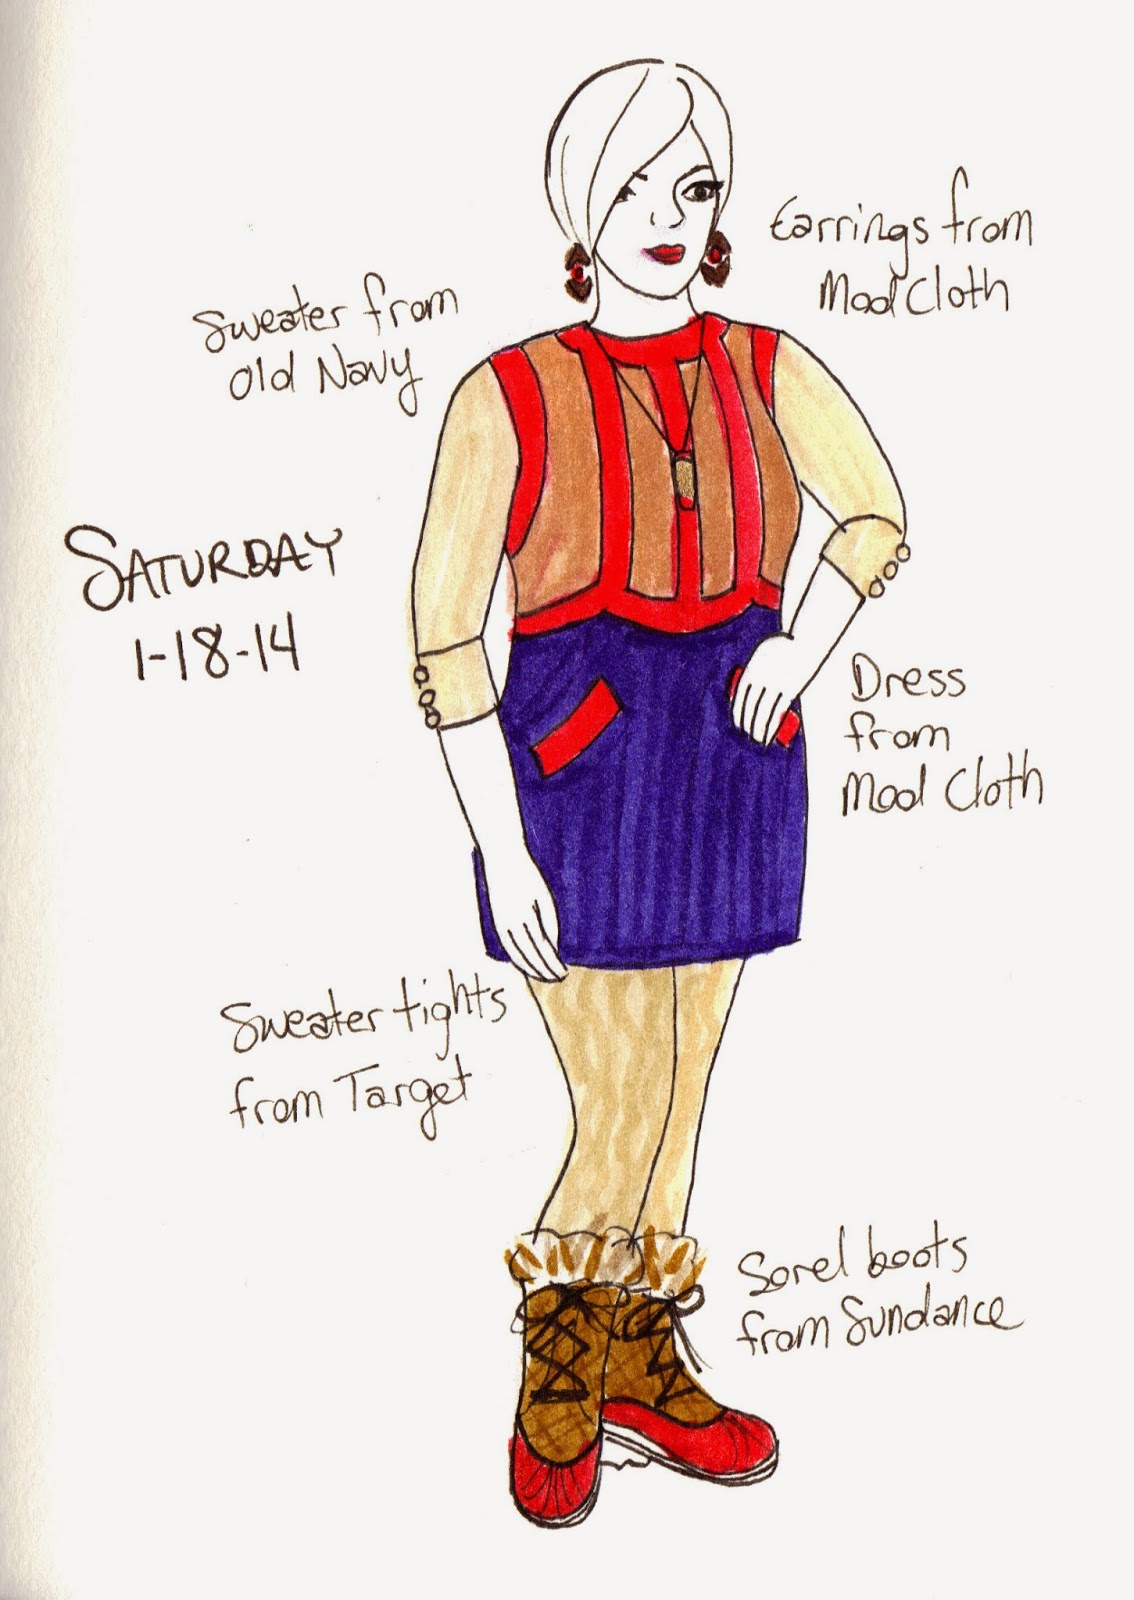 Earrings from
Mod Cloth
Sweater from
Old Navy
SATURDAY
1-18-14
Dress
from
Mod Cloth
Sweater tights
from Target
Sorel boots
from Sundance